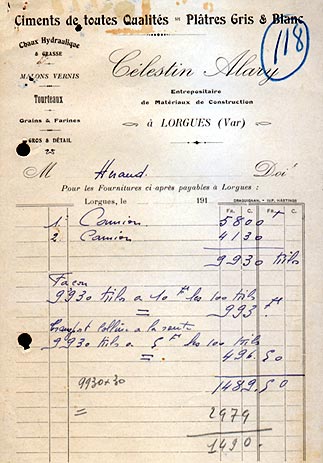 Ciments de toutes Qualités Plâtres Gris & Blanc
118
Chaux Hydraulique
& GRASSE
MALONS VERNIS
Tourteaux
Grains & Farines
GROS & DÉTAIL
Célestin Alary
Entrepositaire
de Matériaux de Construction
à LORGUES (Var)
M Doit
Pour les Fournitures ci après payables à Lorgues :
Lorgues, le 191
DRAGUIGNAN. - IMP. HASTINGS
FR. C. FR. C.
1° Camion 5800
2. Camion 4130
9930 kils
Façon
9930 kils a 10 fs les 100 kils
= 993 fs
a la
9930 kils a 5 fs les 100 kils
= 496.50
9930×30 1489.50
= 2979
1490.